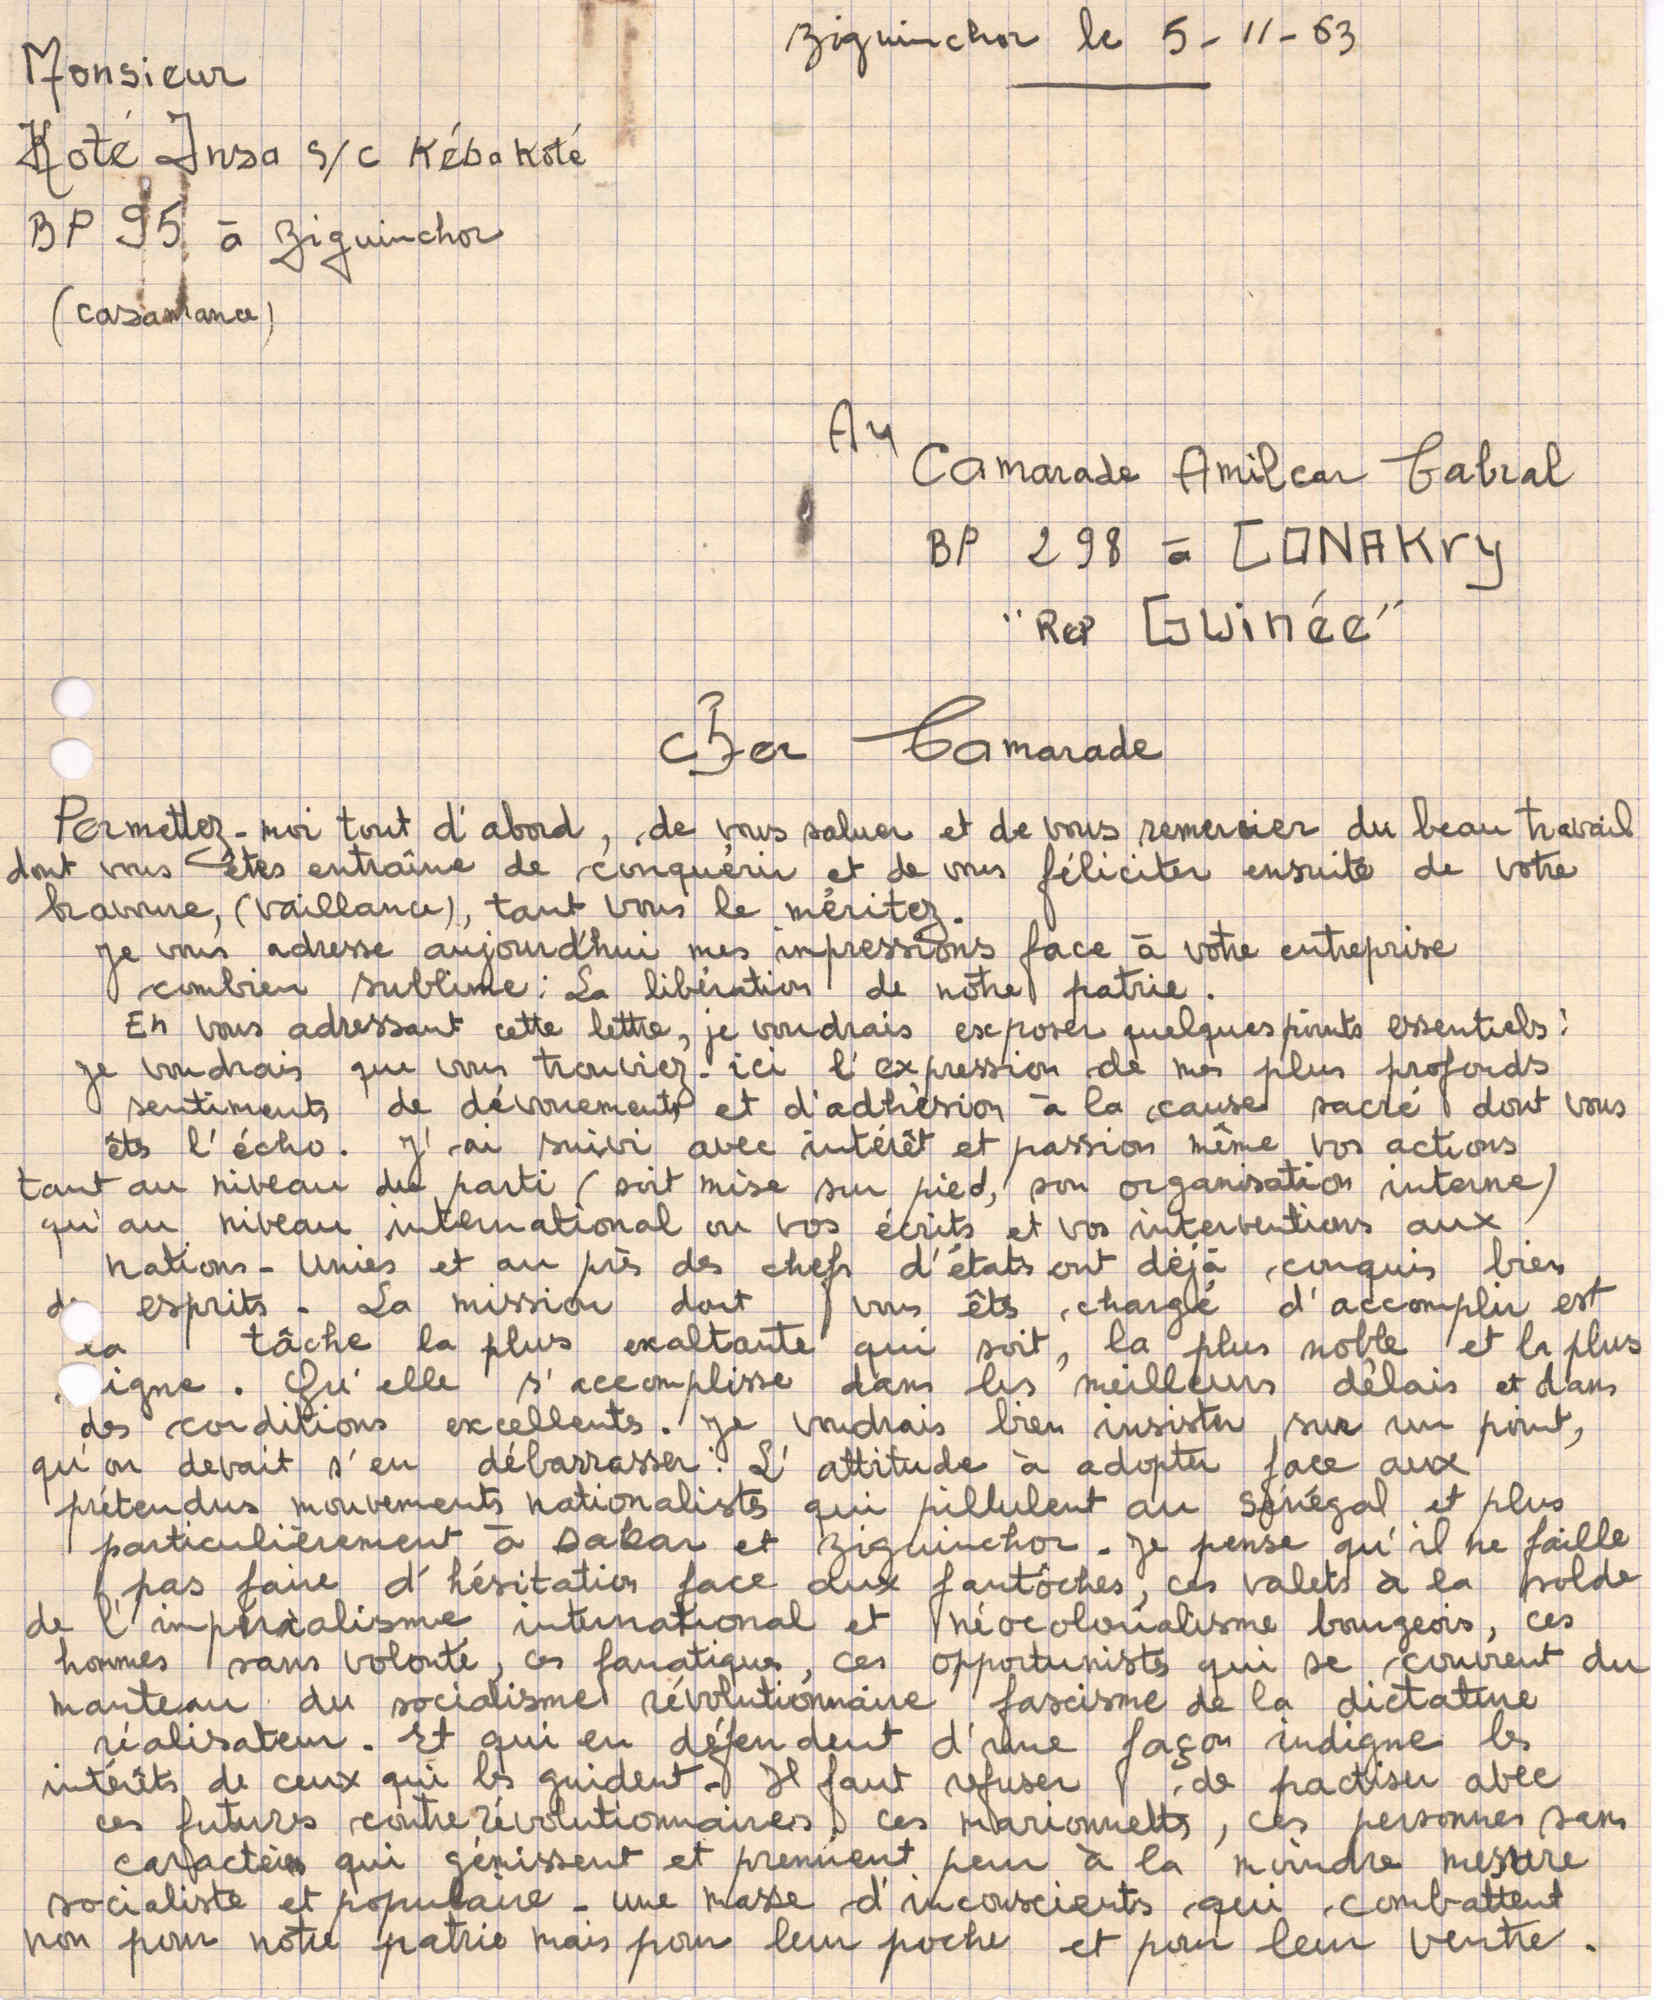 Ziguinchor le 5-11-63
Monsieur
Koté Insa s/c Kéba Koté
BP 95 à Ziguinchor
(casamance)
Au
Camarade Amilcar Cabral
BP 298 à CONAKry
"Rep GUinée"
Cher Camarade
Permettez-moi tout d'abord, de vous saluer et de vous remercier du beau travail
dont vous êtes entraîne de conquérir et de vous féliciter ensuite de votre
bravoure, (vaillance), tant vous le méritez.
Je vous adresse aujourd'hui mes impressions face à votre entreprise
combien sublime: La libération de notre patrie.
En vous adressant cette lettre, je voudrais exposer quelques points essentiels:
Je voudrais que vous trouviez-ici l'expression de mes plus profonds
sentiments de dévouements et d'adhésion à la cause sacré dont vous
êts l'écho. J'ai suivi avec intérêt et passion même vos actions
tant au niveau du parti (soit mise sur pied, son organisation interne)
qu'au niveau international ou vos écrits et vos interventions aux
nations-Unies et au près des chefs d'états ont déjà conquis bien
esprits. La mission dont vous êts chargé d'accomplir est
la tâche la plus exaltante qui soit, la plus noble et la plus
igne. Qu'elle s'accomplisse dans les meilleurs délais et dans
des conditions excellents. Je voudrais bien insister sur un point,
qu'on devait s'en débarrasser: L'attitude à adopter face aux
prétendus mouvements nationalists qui pillulent au Sénégal et plus
particulièrement à Dakar et Ziguinchor. Je pense qu'il ne faille
pas faire d'hésitation face aux fantôches, ces valets à la solde
de l'impérialisme international et néocolonialisme bourgeois, ces
hommes sans volonté, ces fanatiques, ces opportunists qui se couvrent du
manteau du socialisme révolutionnaire fascisme de la dictature
réalisateur. Et qui en défendent d'une façon indigne les
intérêts de ceux qui les guident. Il faut refuser de pactiser avec
ces futures contre révolutionnaires ces marionnetts, ces personnes sans
caractères qui gémissent et prennent peur à la moindre mesure
socialiste et populaire - une masse d'inconscients qui combattent
non pour notre patrie mais pour leur poche et pour leur ventre.